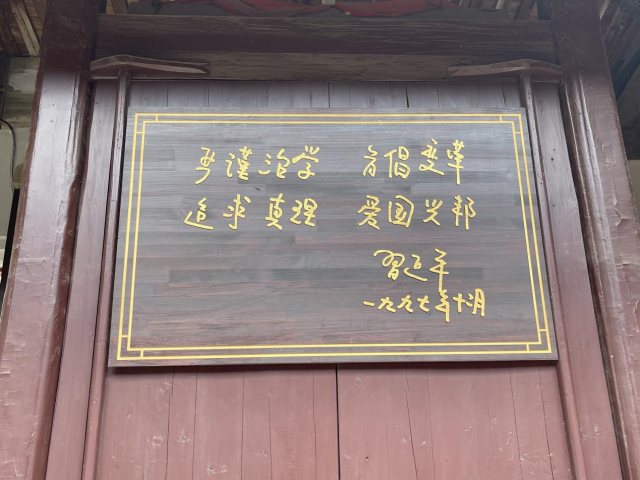 严谨治学 首倡变革
追求真理 爱国兴邦
習近平
一九九七年十二月